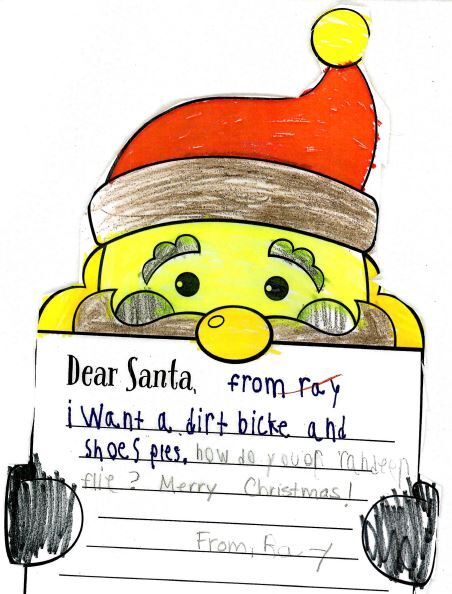 Dear Santa, from ray
i want a dirt bicke and
shoes ples. how do your
flie? Merry Christmas!
From, Ray